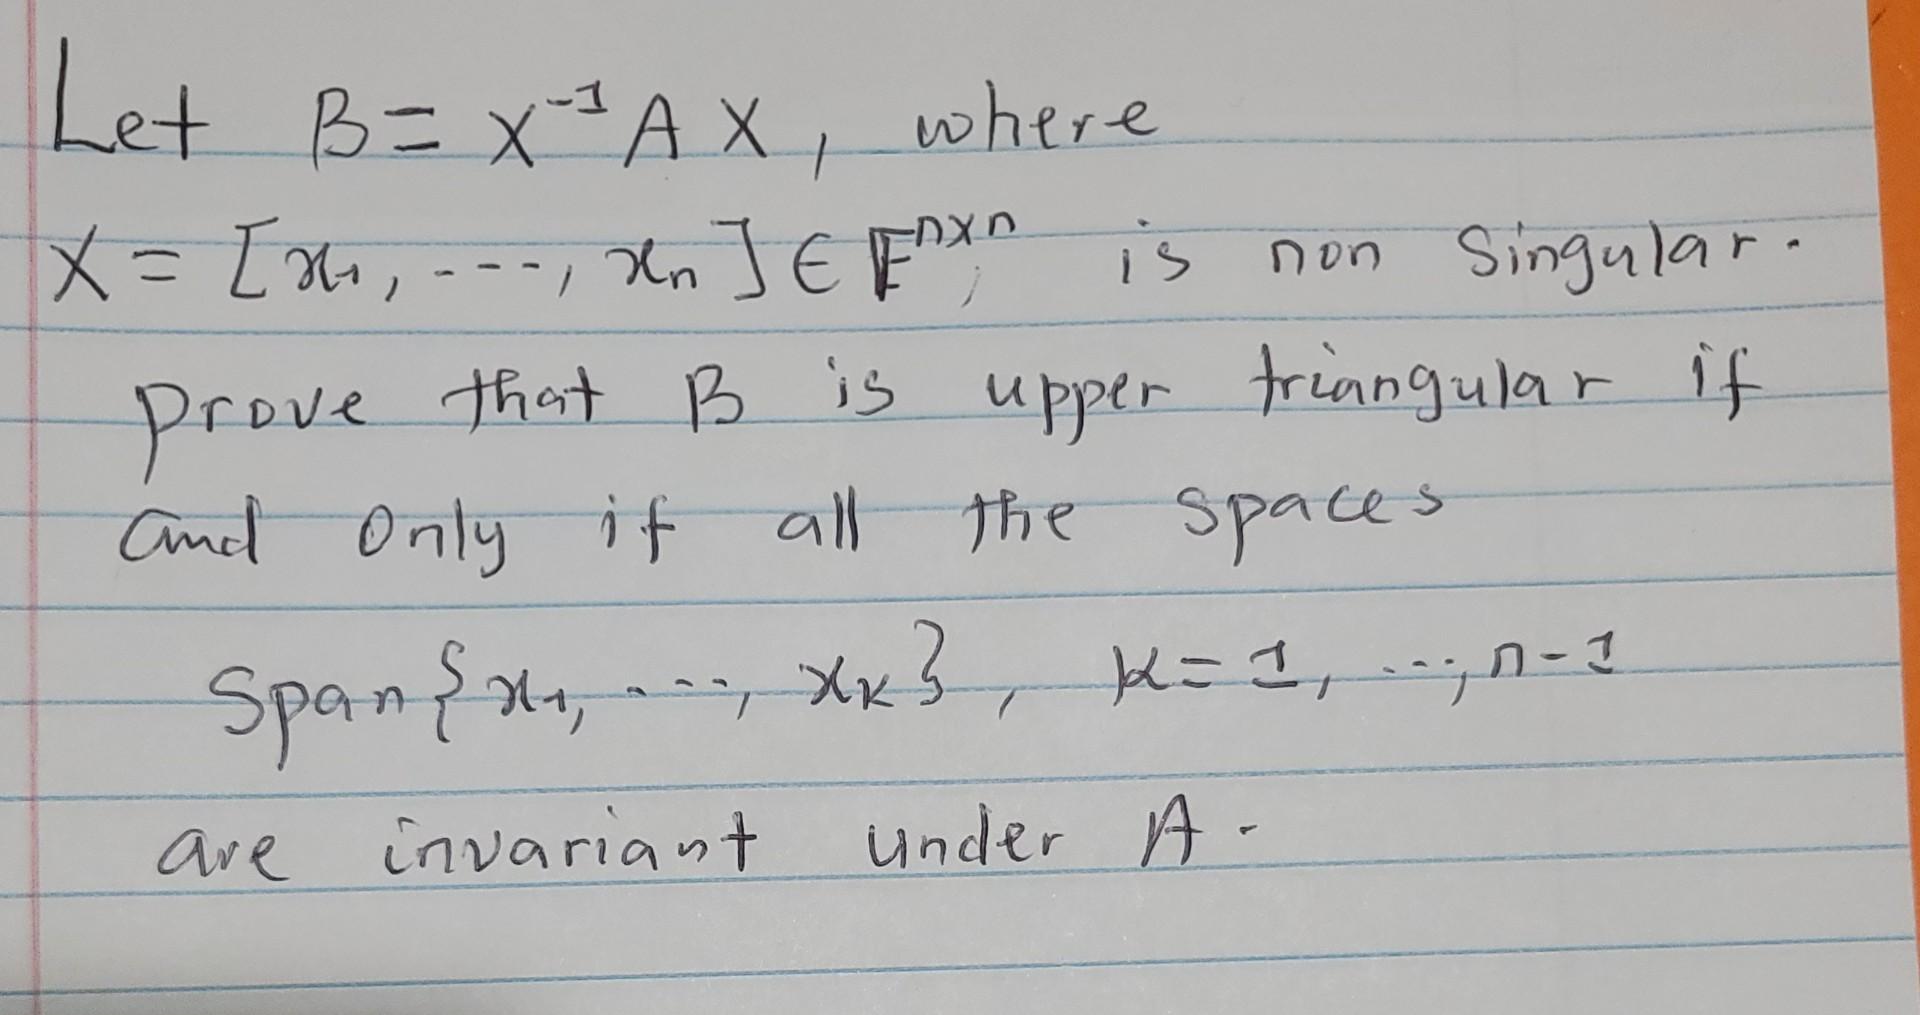 Let B = X⁻¹ A X, where
X = [x₁, ----, xₙ] ∈ 𝔽ⁿˣⁿ, is non Singular.
prove that B is upper triangular if
and only if all the spaces
Span{x₁, ---, xₖ}, k = 1, ..., n-1
are invariant under A.